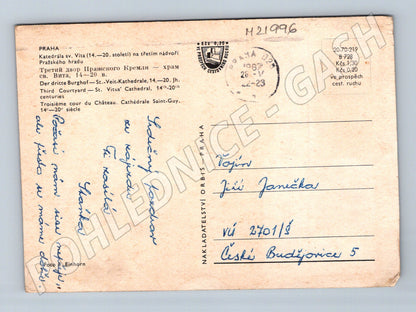 M21996
PRAHA
Katedrála sv. Víta (14.—20. století) na třetím nádvoří
Pražského hradu
Третий двор Пражского Кремля — храм
св. Вита, 14—20 в.
Der dritte Burghof — St.-Veit-Kathedrale, 14.—20. Jh.
Third Courtyard — St. Vitus' Cathedral, 14th-20th
centuries
Troisième cour du Château. Cathédrale Saint-Guy,
14e-20e siècle
Kčs 0,20
PRAHA
1962
20-70-219
B-728
Kčs 1,20
Kčs 0,20
ve prospěch
cest. ruchu
Srdečný pozdrav
Ti zasílá
Stáňka
Počasí mám
ale přesto se máme dobře.
NAKLADATELSTVÍ ORBIS - PRAHA
Vojín
Jiří Janička
VÚ 2701/Š
České Budějovice 5
Einhorn
POHLEDNICE - GASH